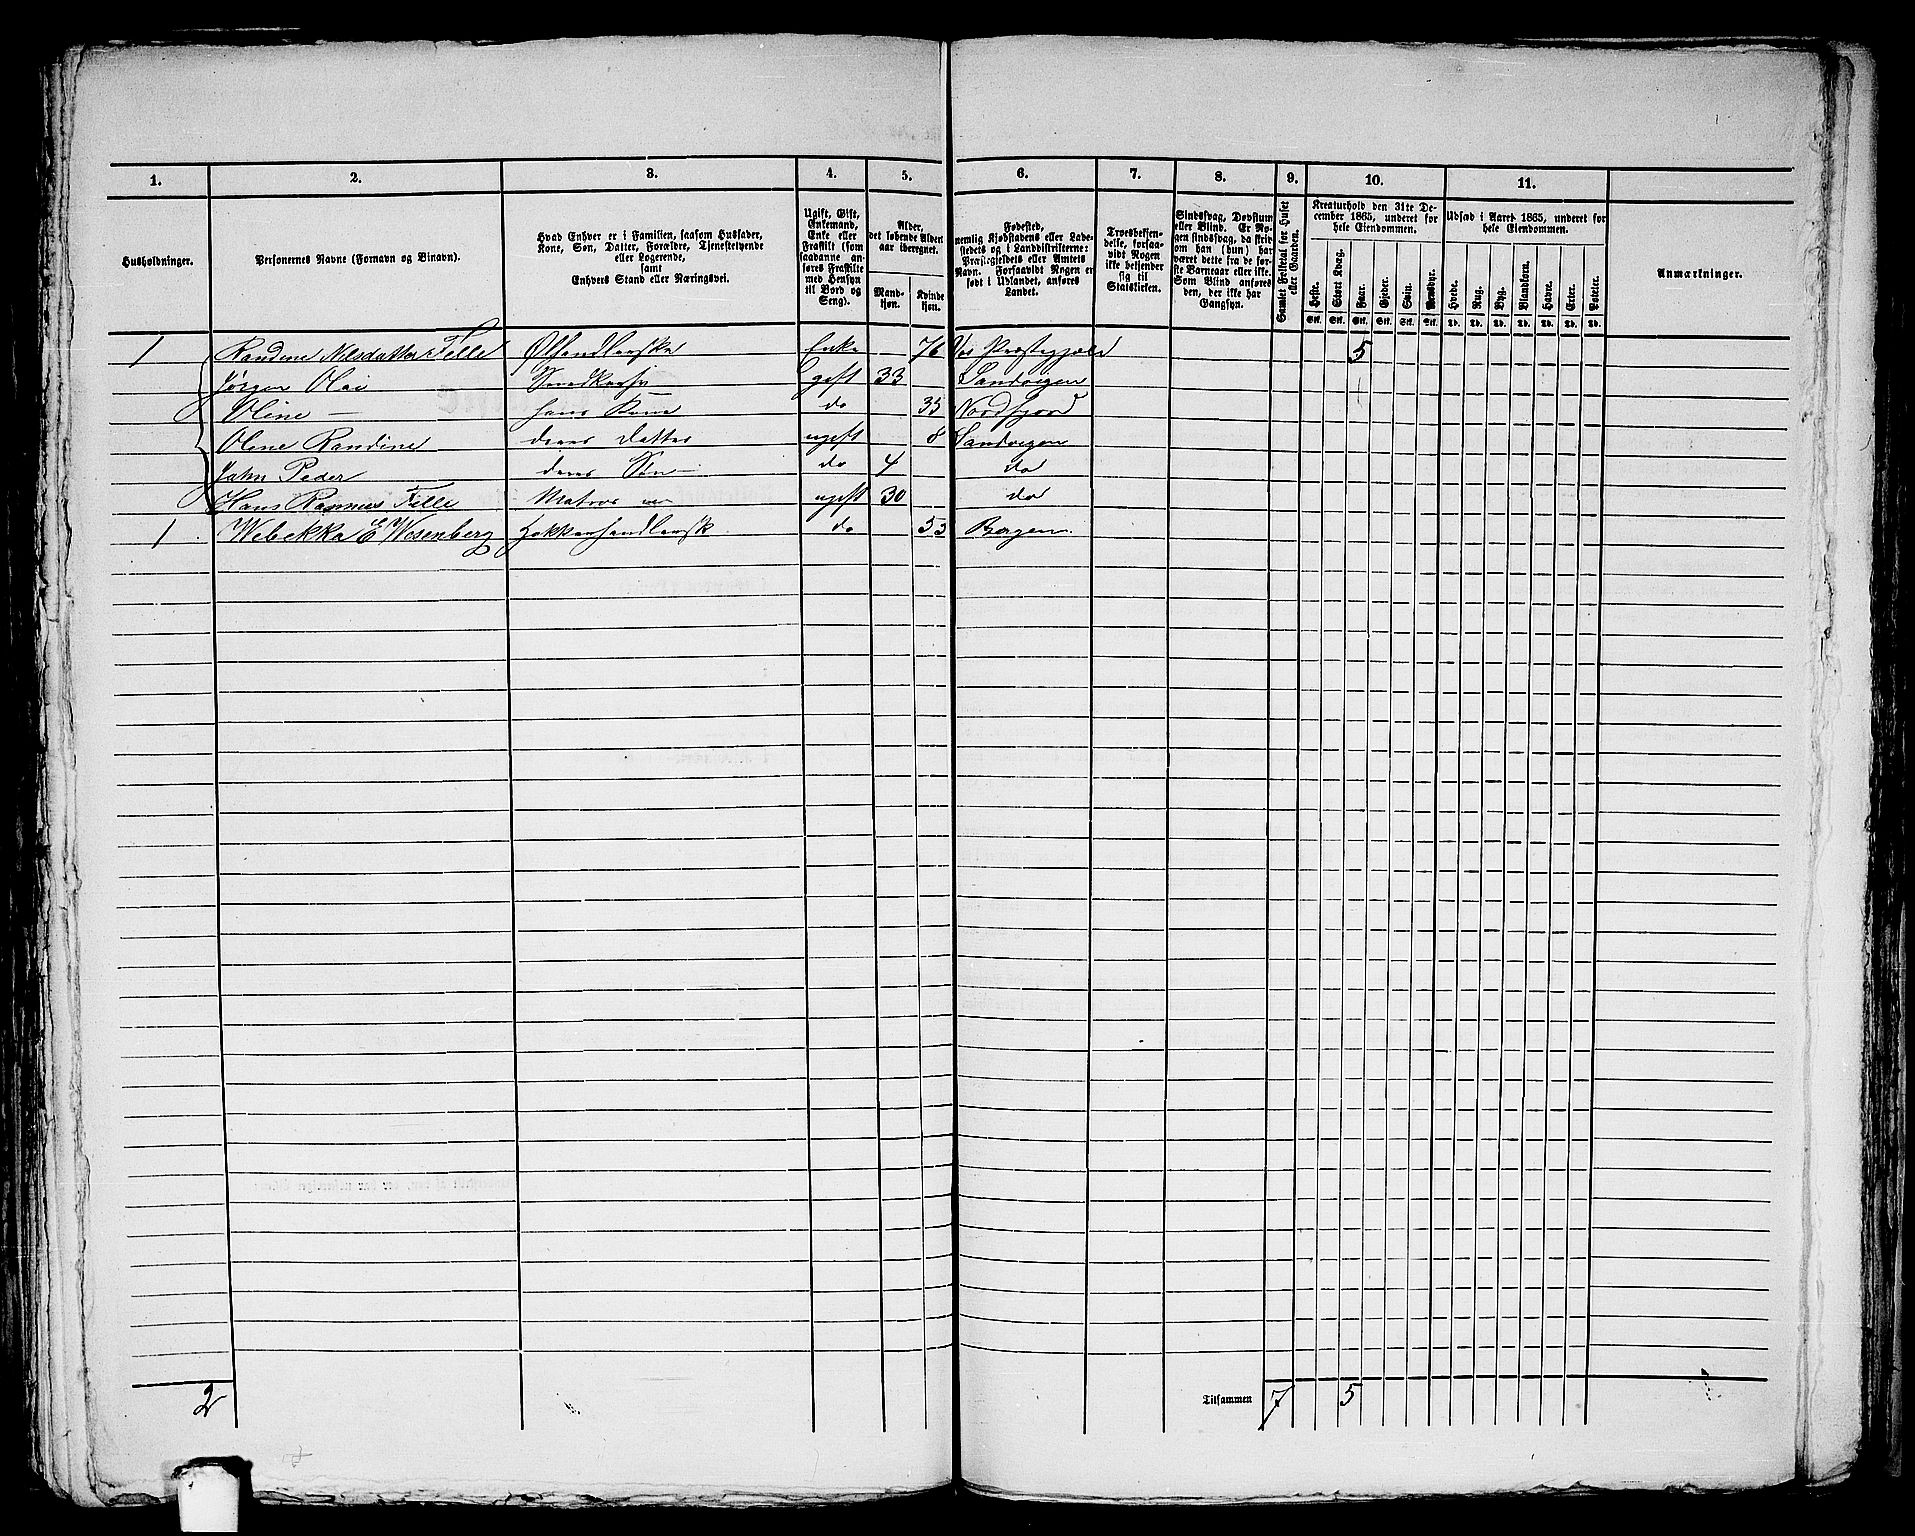 1. 2. 3. 4. 5. 6. 7. 8. 9. 10. 11.
Husholdninger.
Personernes Navne (Fornavn og Binavn).
Hvad Enhver er i Familien, saasom Husfader,
Kone, Søn, Datter, Forældre, Tjenestetyende
eller Logerende,
samt
Enhvers Stand eller Næringsvei.
Ugift, Gift,
Enkemand,
Enke eller
Fraskilt (som
saadanne an-
føres Fraskilte
med Hensyn
til Bord og
Seng).
Alder,
det løbende Alders-
aar iberegnet.
Mand-
kjøn.
Kvinde-
kjøn.
Fødested,
nemlig Kjøbstadens eller Lade-
stedets og i Landdistrikterne:
Præstegjeldets eller Amtets
Navn. Forsaavidt Nogen er
født i Udlandet, anføres
Landet.
Troesbekjen-
delse, forsaa-
vidt Nogen
ikke bekjender
sig til
Statskirken.
Sindssvag, Døvstum
eller Blind. Er No-
gen sindssvag, da skriv
om han (hun) har
været dette fra de før-
ste Barneaar eller ikke.
Som Blind anføres
den, der ikke har
Gangsyn.
Samlet Folketal for Huset
eller Gaarden.
Kreaturhold den 31te De-
cember 1865, underet for
hele Eiendommen.
Heste. Stort Kvæg. Faar. Gjeder. Sviin. Rensdyr.
Stk. Stk. Stk. Stk. Stk. Stk.
Udsæd i Aaret 1865, underet for
hele Eiendommen.
Hvede. Rug. Byg. Blandkorn. Havre. Erter. Poteter.
Td. Td. Td. Td. Td. Td. Td.
Anmærkninger.
1 Randine Nilsdatter Felle Ølhandlerske Enke 76 Vos Præstegjæld 5
Jørgen Olai gift 33 Sandvigen
Oline — hans Kone do 35 Nordfjord
Oline Randine deres Datter ugift 8 Sandvigen
John Peder deres Søn do 4 do
Hans Rasmus Felle Matros ugift 30 do
1 Webekka E Wesenberg Høkkerhandlersk do 53 Bergen
2 Tilsammen 7 5